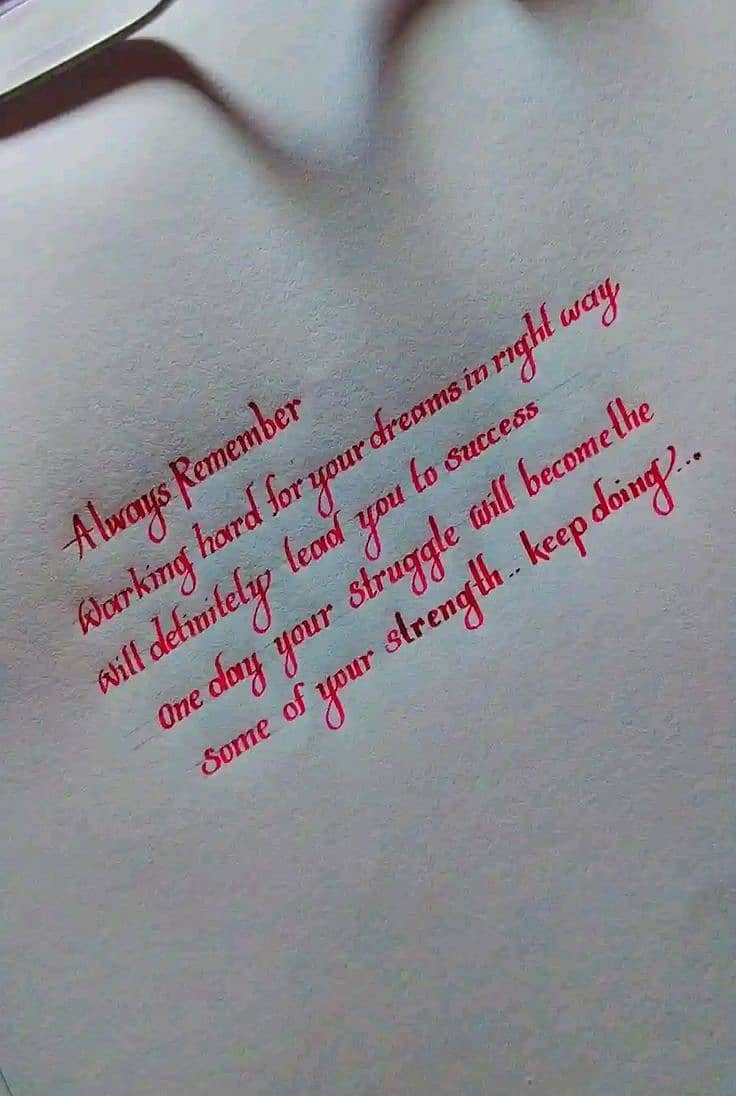 Always Remember
Working hard for your dreams in right way
will definitely lead you to success
One day your struggle will become the
some of your strength.. keep doing...